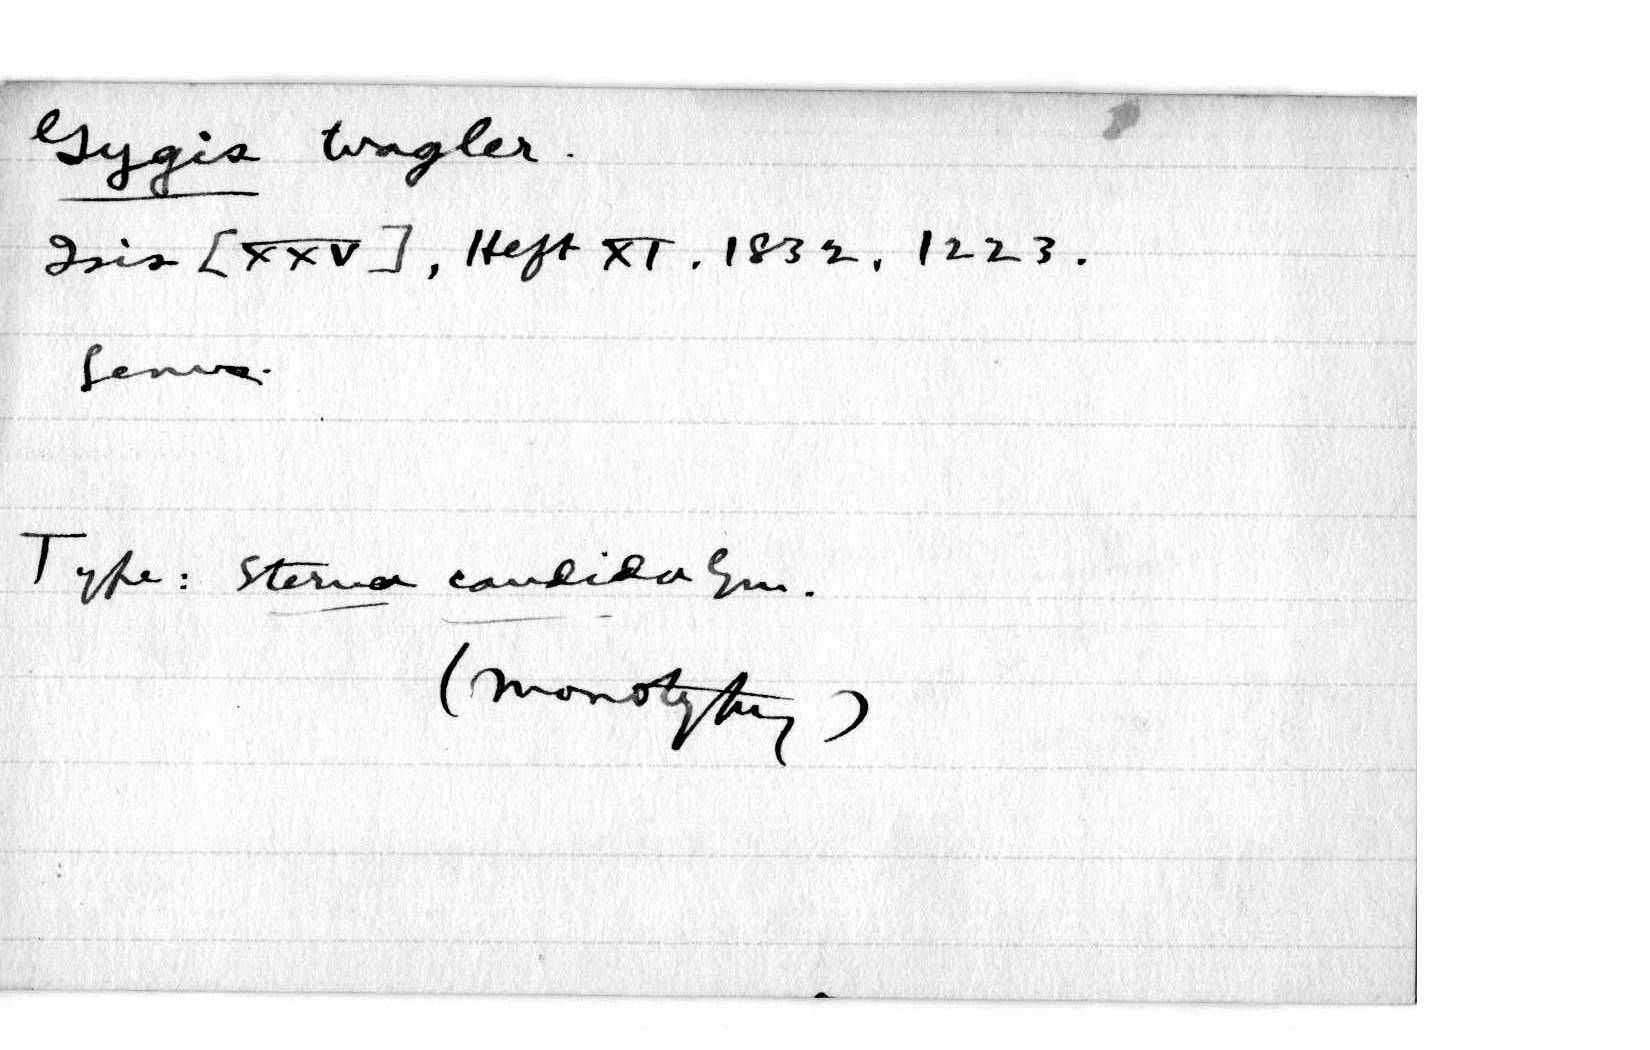 Gygis Wagler.
Isis [XXV], Heft XI. 1832, 1223.
Genus.
Type: Sterna candida Gm.
(monotypy)